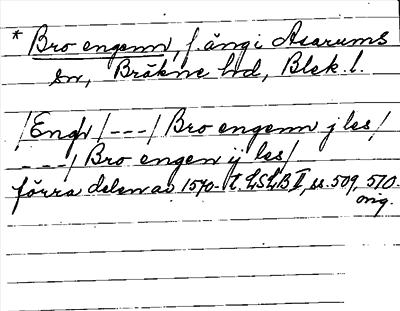 * Bro engenn, f. äng i Asarums
sn, Bräkne hd, Blek. l.
/Engh/ --- / Bro engenn j les/
---/ Bro engen ij les/
förra delen av 1570-t. LSLB II, ss. 509, 510.
orig.